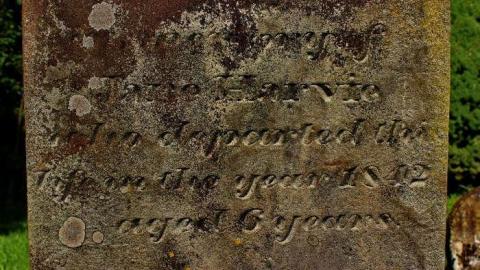 In memory of
Jane Harvie
who departed this
life in the year 1842
aged 6 years